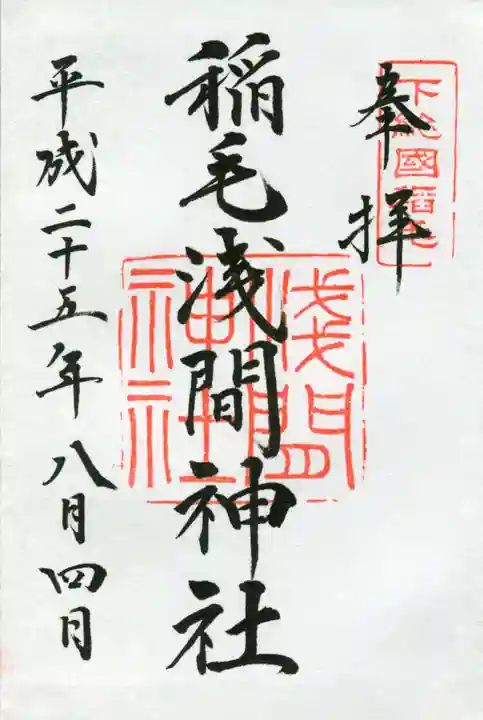 奉拝
下総國稲毛
稲毛浅間神社
淺間神社
平成二十五年八月四月